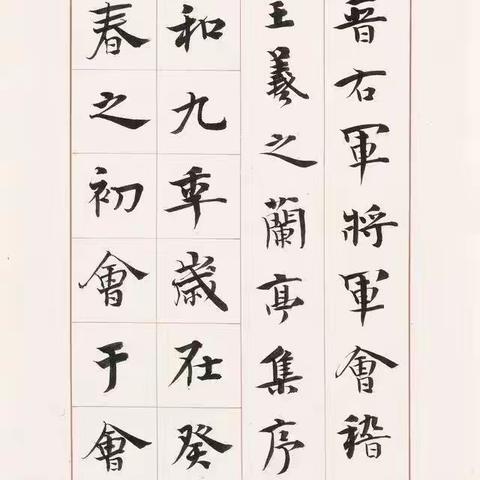 晉右軍將軍會稽
王羲之蘭亭集序
和九年歲在癸
春之初會于會